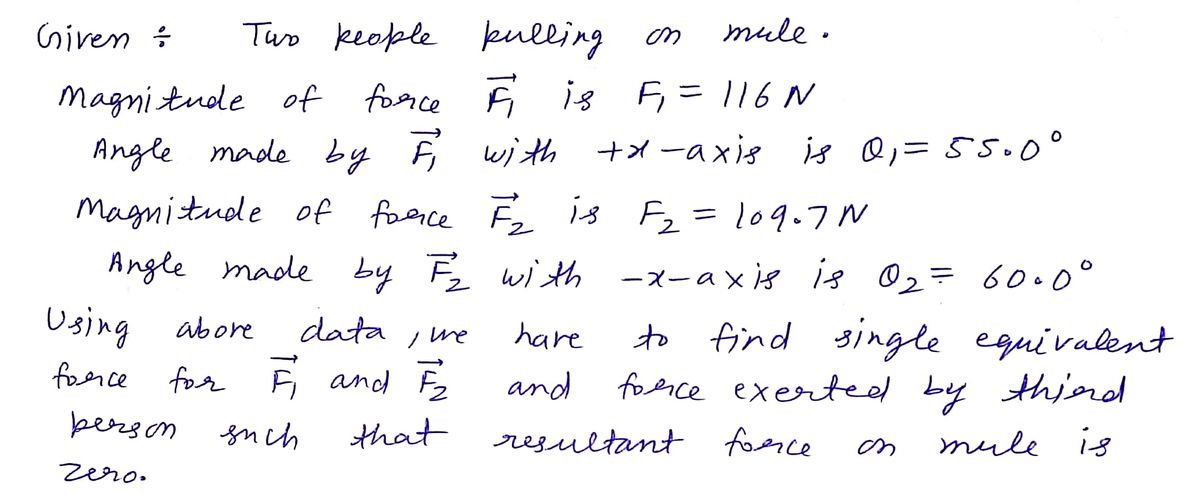 Given ÷ Two people pulling on mule.
Magnitude of force F₁⃗ is F₁ = 116 N
Angle made by F₁⃗ with +x-axis is θ₁ = 55.0°
Magnitude of force F₂⃗ is F₂ = 109.7 N
Angle made by F₂⃗ with -x-axis is θ₂ = 60.0°
Using above data, we have to find single equivalent
force for F₁⃗ and F₂⃗ and force exerted by third
person such that resultant force on mule is
zero.